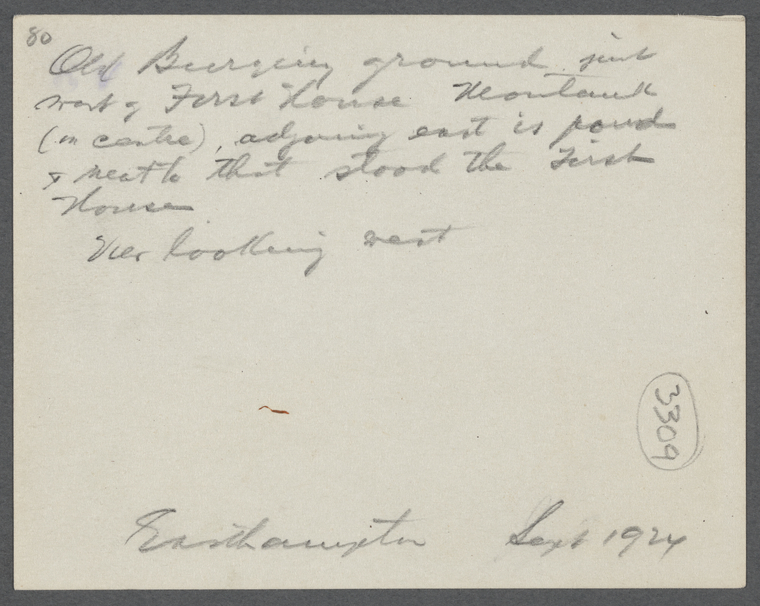 80
Old Burying ground just
west of First House Montauk
(in centre), adjoining east is pond
& next to that stood the First
House
View looking west
3309
Easthampton Sept 1924